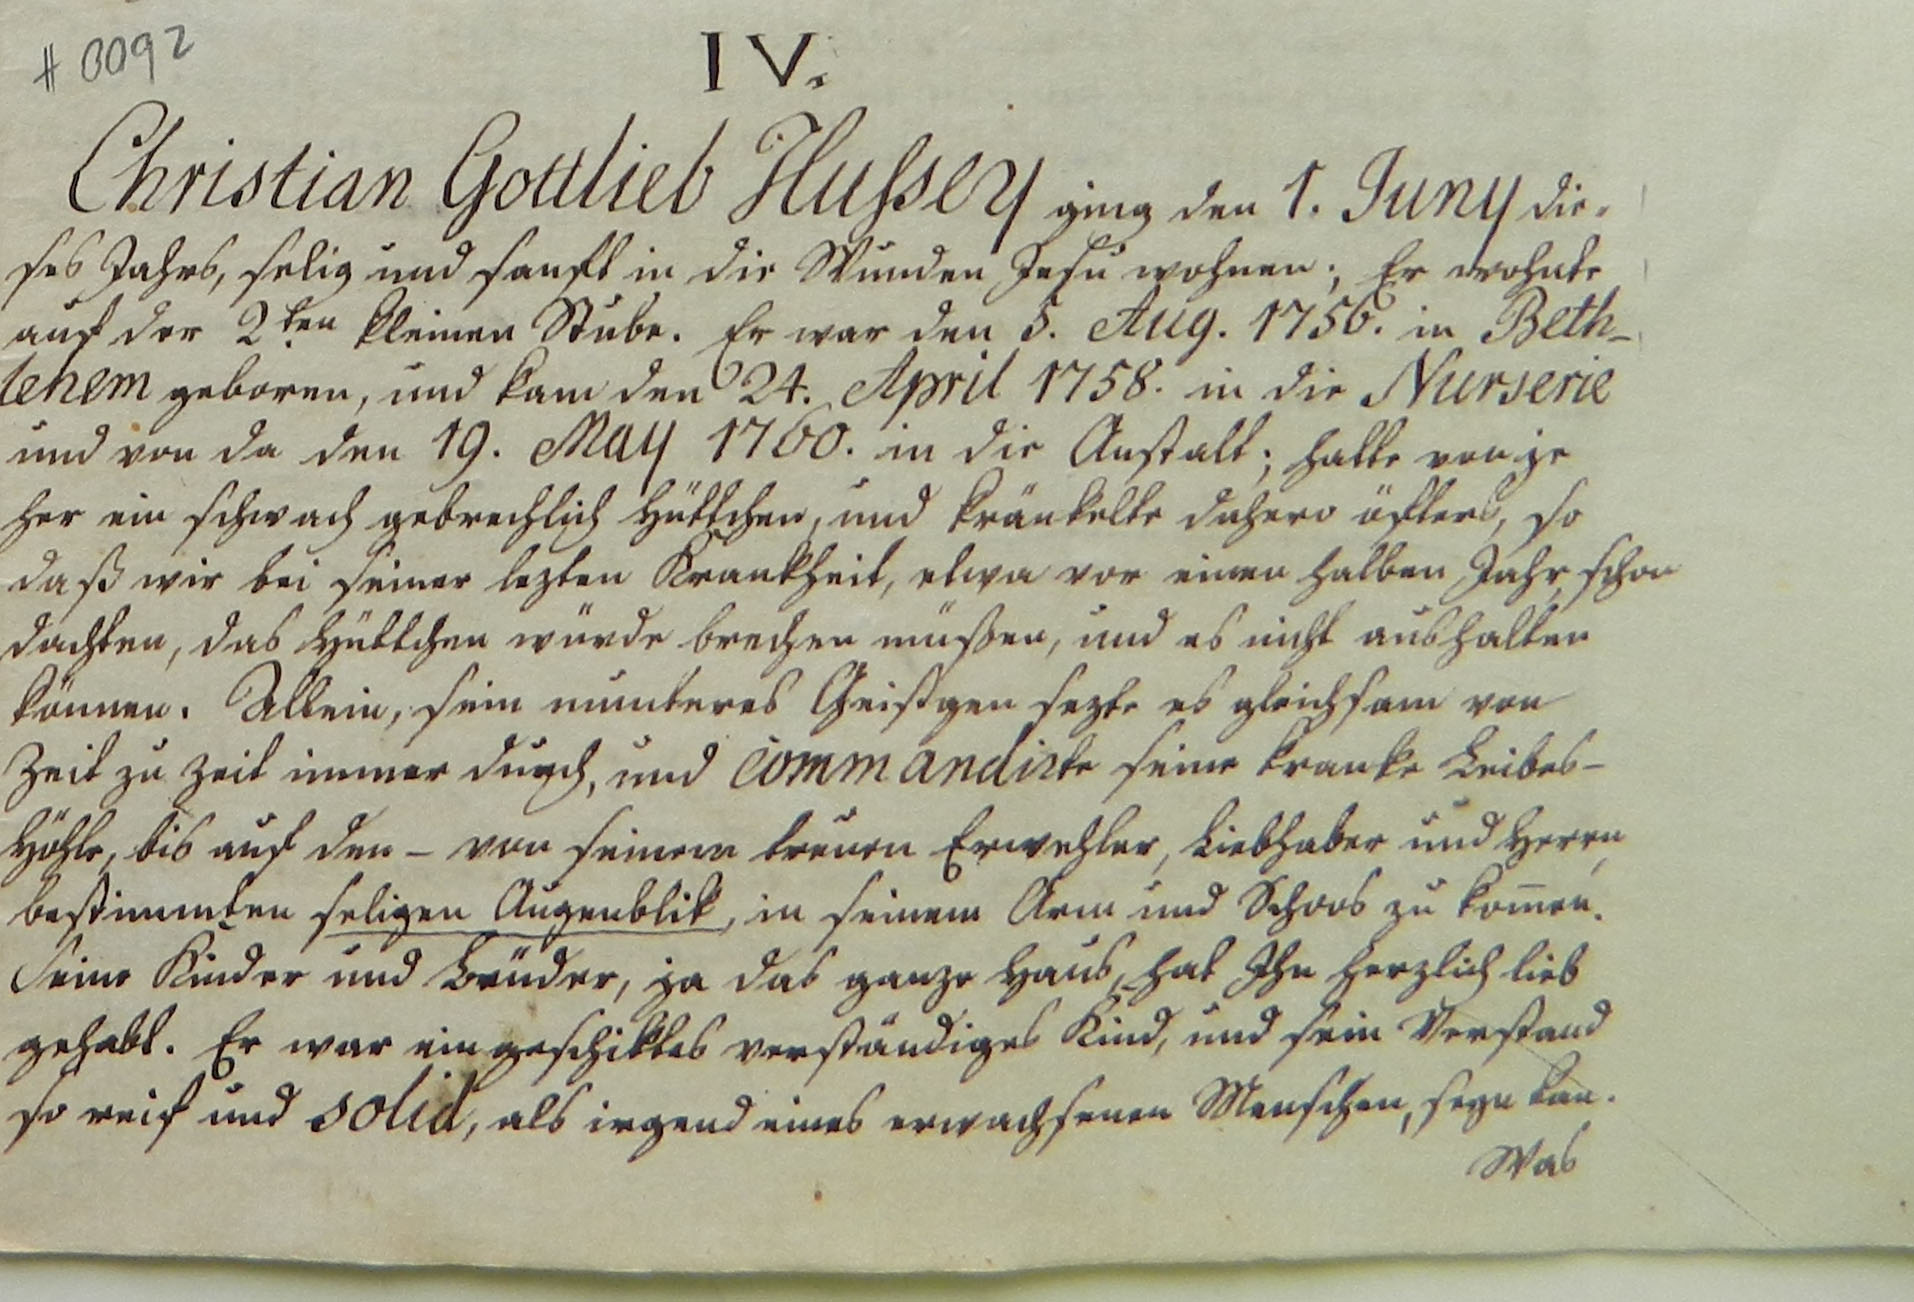 # 0092
IV.
Christian Gottlieb Hussey ging den 1. Juny die-
ses Jahrs, selig und sanft in die Wunden Jesu wohnen; Er wohnte
auf der 2ten kleinen Stube. Er war den 5. Aug. 1756. in Beth-
lehem geboren, und kam den 24. April 1758. in die Nurserie
und von da den 19. May 1760. in die Anstalt; hatte von je
her ein schwach gebrechlich Hüttchen, und kränkelte dahero öfters, so
daß wir bei seiner lezten Krankheit, etwa vor einen halben Jahr, schon
dachten, das Hüttchen würde brechen müßen, und es nicht aushalten
können. Allein, sein munteres Geistgen sezte es gleichsam von
Zeit zu Zeit immer durch, und commandirte seine kranke Leibes-
Höhle, bis auf den – von seinem treuen Erwehler, Liebhaber und Herrn,
bestimmten seligen Augenblik, in seinem Arm und Schoos zu kom̅en.
Seine Kinder und Brüder, ja das ganze Haus, hat Ihn herzlich lieb
gehabt. Er war ein geschiktes verständiges Kind, und sein Verstand
so reif und solid, als irgend eines erwachsenen Menschen, seyn kan.
Was